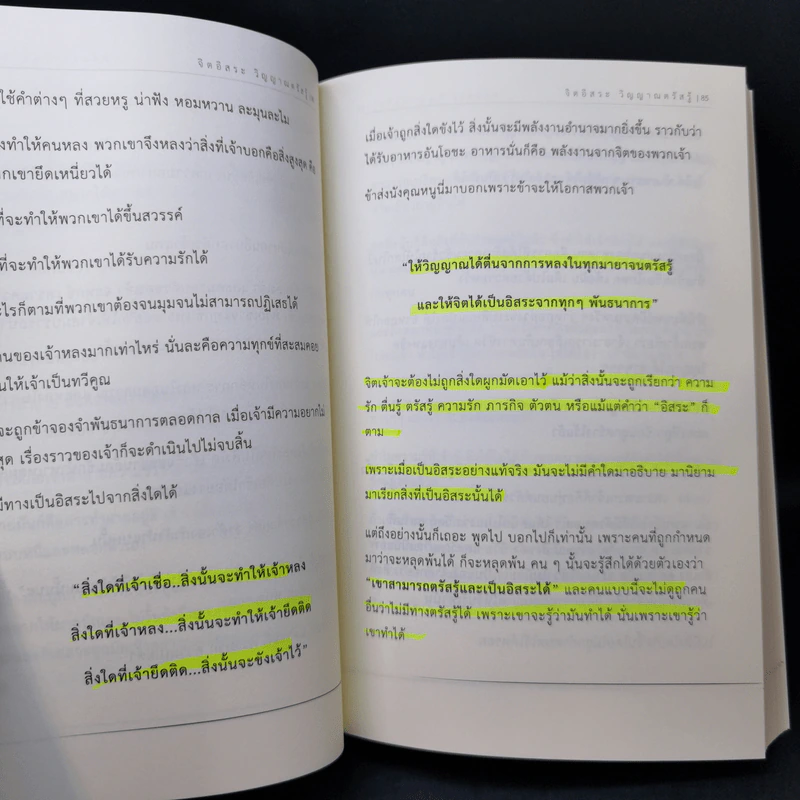 จิตอิสระ วิญญาณตรัสรู้
ใช้คำต่างๆ ที่สวยหรู น่าฟัง หอมหวาน ละมุนละไม
ทำให้คนหลง พวกเขาจึงหลงว่าสิ่งที่เจ้าบอกคือสิ่งสูงสุด คือ
เขายึดเหนี่ยวได้
ที่จะทำให้พวกเขาได้ขึ้นสวรรค์
ที่จะทำให้พวกเขาได้รับความรักได้
ไรก็ตามที่พวกเขาต้องจนมุมจนไม่สามารถปฏิเสธได้
ของเจ้าหลงมากเท่าไหร่ นั่นละคือความทุกข์ที่สะสมคอย
ให้เจ้าเป็นทวีคูณ
จะถูกข้าจองจำพันธนาการตลอดกาล เมื่อเจ้ามีความอยากไม่
สุด เรื่องราวของเจ้าก็จะดำเนินไปไม่จบสิ้น
มีทางเป็นอิสระไปจากสิ่งใดได้
“สิ่งใดที่เจ้าเชื่อ..สิ่งนั้นจะทำให้เจ้าหลง
สิ่งใดที่เจ้าหลง...สิ่งนั้นจะทำให้เจ้ายึดติด
สิ่งใดที่เจ้ายึดติด...สิ่งนั้นจะขังเจ้าไว้”
จิตอิสระ วิญญาณตรัสรู้ | 85
เมื่อเจ้าถูกสิ่งใดขังไว้ สิ่งนั้นจะมีพลังงานอำนาจมากยิ่งขึ้น ราวกับว่า
ได้รับอาหารอันโอชะ อาหารนั่นก็คือ พลังงานจากจิตของพวกเจ้า
ข้าส่งนังคุณหนูนี่มาบอกเพราะข้าจะให้โอกาสพวกเจ้า
“ให้วิญญาณได้ตื่นจากการหลงในทุกมายาจนตรัสรู้
และให้จิตได้เป็นอิสระจากทุกๆ พันธนาการ”
จิตเจ้าจะต้องไม่ถูกสิ่งใดผูกมัดเอาไว้ แม้ว่าสิ่งนั้นจะถูกเรียกว่า ความ
รัก ตื่นรู้ ตรัสรู้ ความรัก ภารกิจ ตัวตน หรือแม้แต่คำว่า “อิสระ” ก็
ตาม
เพราะเมื่อเป็นอิสระอย่างแท้จริง มันจะไม่มีคำใดมาอธิบาย มานิยาม
มาเรียกสิ่งที่เป็นอิสระนั้นได้
แต่ถึงอย่างนั้นก็เถอะ พูดไป บอกไปก็เท่านั้น เพราะคนที่ถูกกำหนด
มาว่าจะหลุดพ้นได้ ก็จะหลุดพ้น คน ๆ นั้นจะรู้สึกได้ด้วยตัวเองว่า
“เขาสามารถตรัสรู้และเป็นอิสระได้” และคนแบบนี้จะไม่ดูถูกคน
อื่นว่าไม่มีทางตรัสรู้ได้ เพราะเขาจะรู้ว่ามันทำได้ นั่นเพราะเขารู้ว่า
เขาทำได้